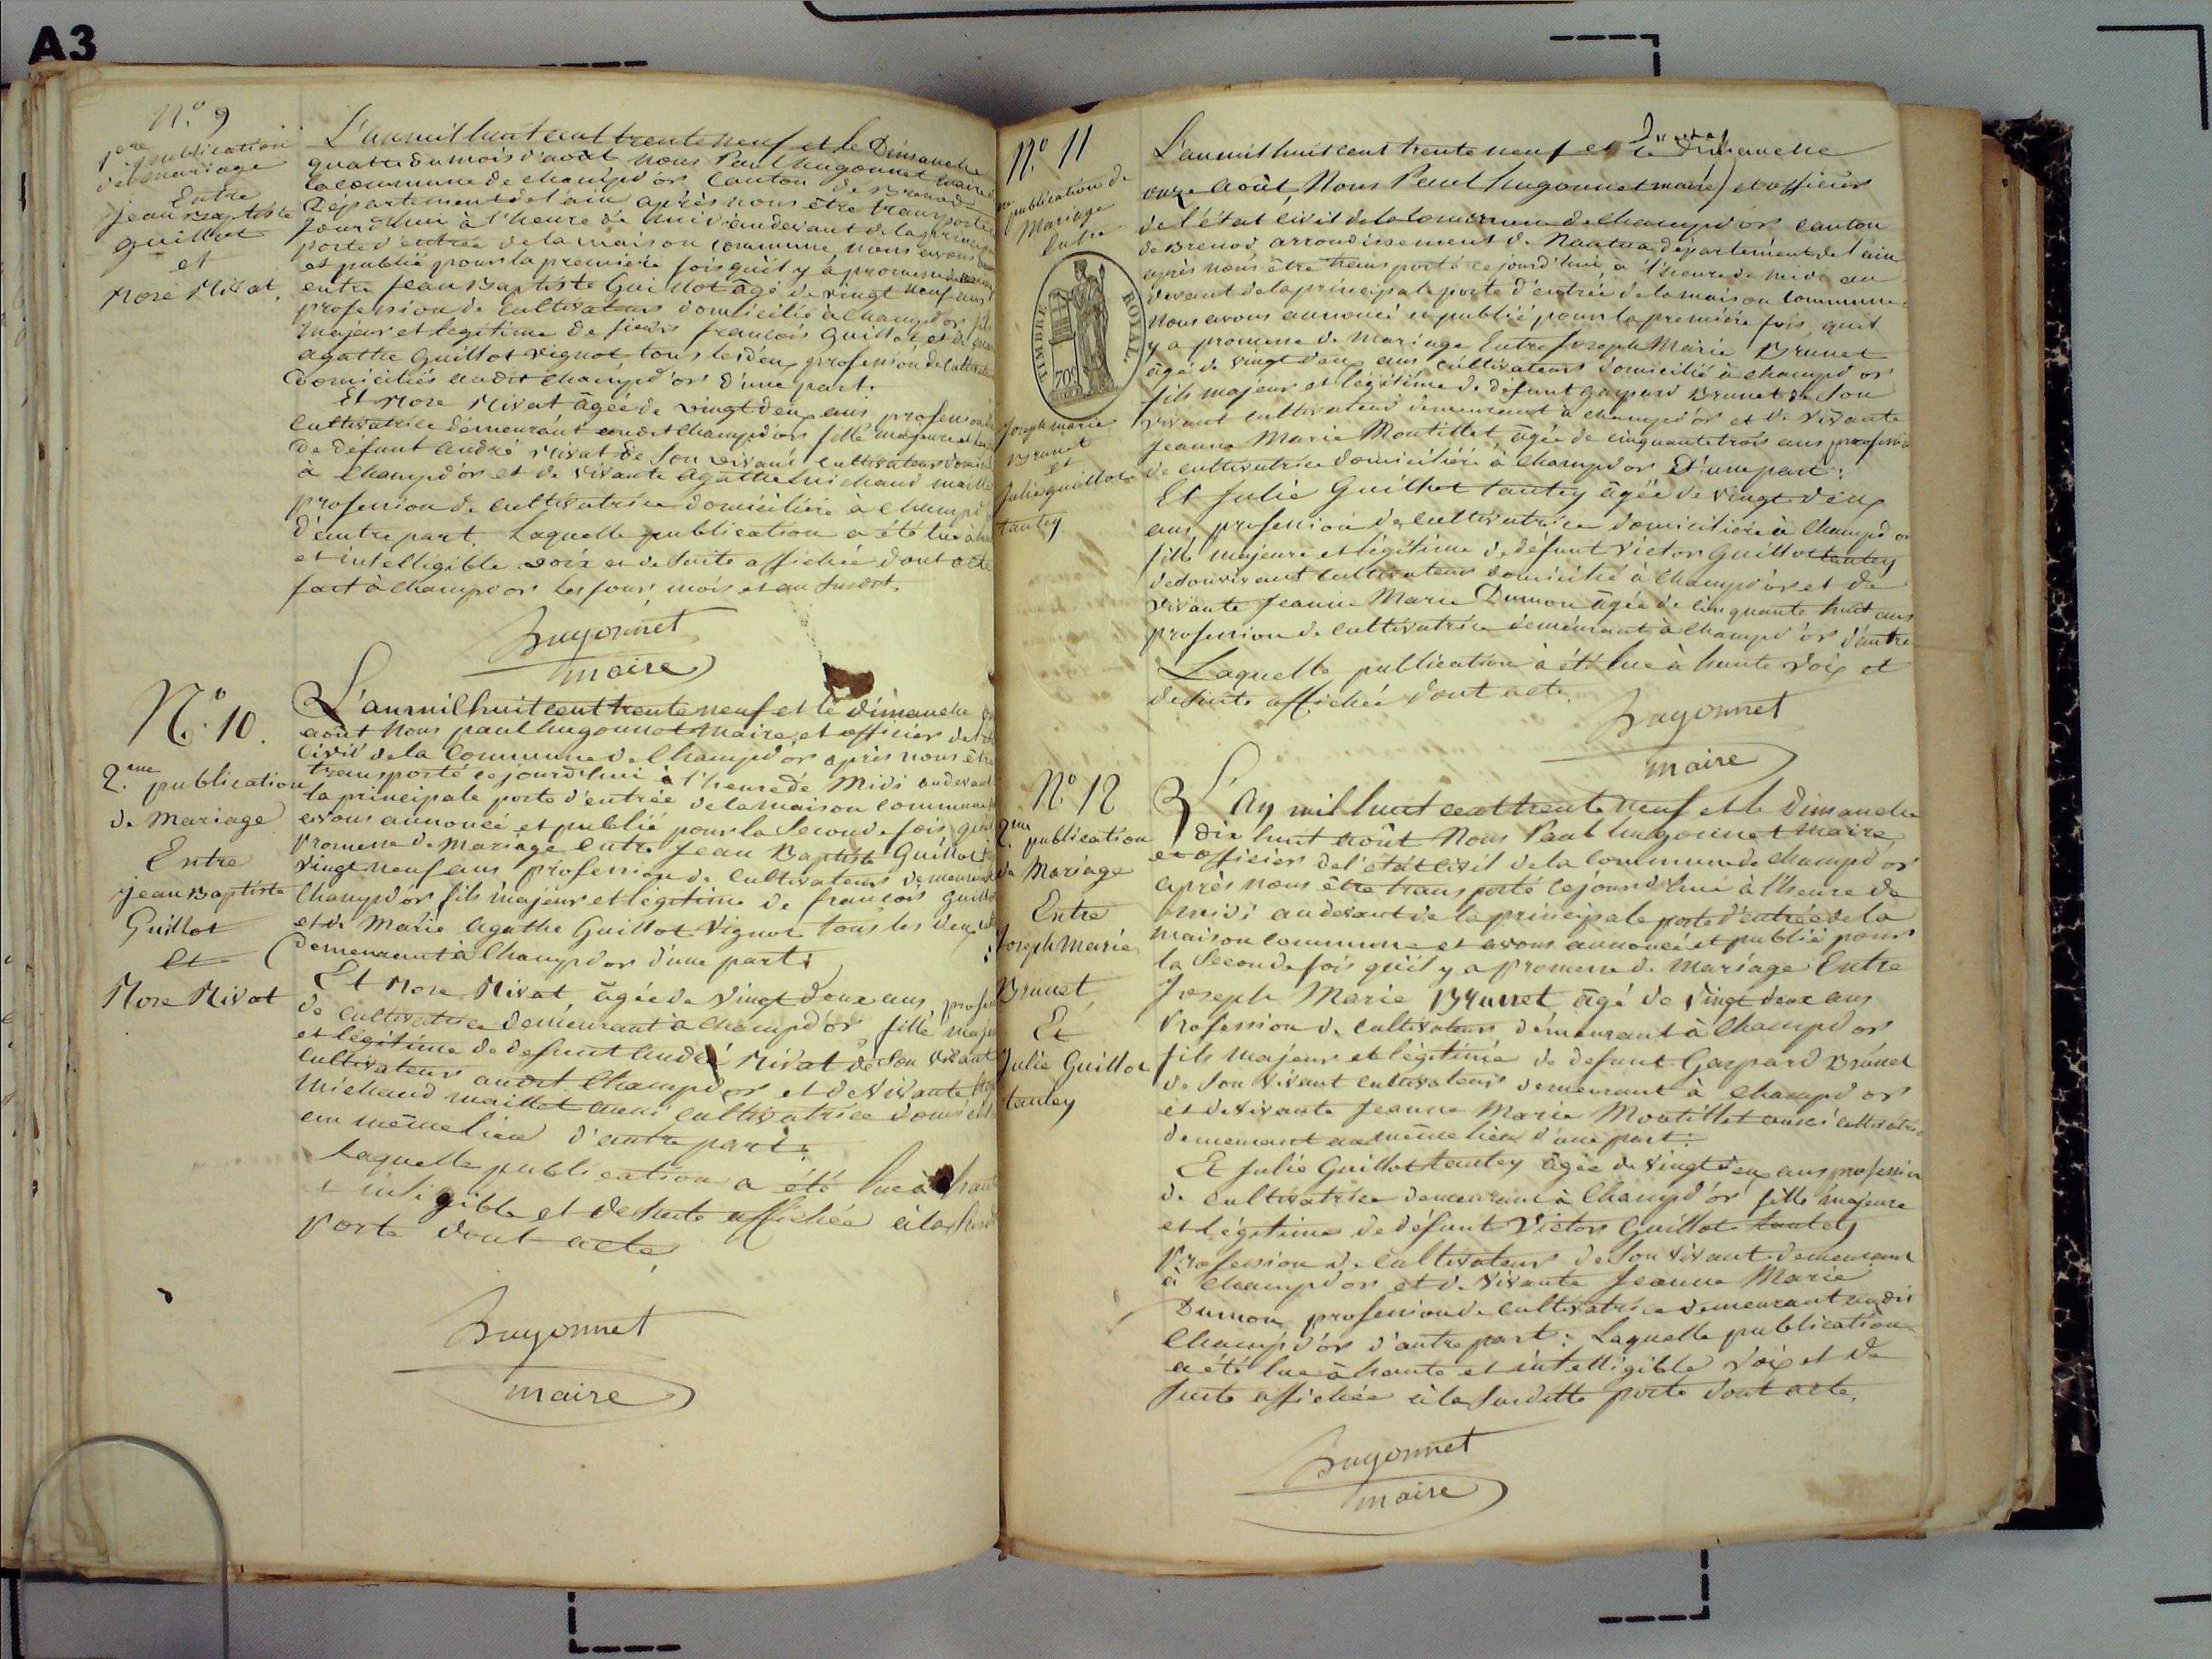 A3
N.° 9
1ere publication
de mariage
Entre
jean Baptiste
guillot
et
Rose Nivat
L'an mil huit cent trente neuf et le Dimanche
quatre du mois d'août nous Paul hugonnet maire
la commune de champd'or Canton de Brenod
Département de l'ain après nous être transporté
jourd'hui à l'heure de midi audevant de la principale
porte d'entrée de la maison commune nous avons
et publié pour la première fois qu'il y à promesse de
entre Jean Baptiste Guillot âgé de vingt neuf ans
profession de Cultivateur domicilié à champd'or fils
majeur et légitime de françois Guillot et de
agathe Guillot vignot tous les deux profession de Cultivateur
domiciliés audit champd'or d'une part.
Et Rose Nivat, âgée de vingt deux ans profession
Cultivatrice demeurant audit champd'or fille majeure et
de défunt andré Nivat de son vivant cultivateur
à Champd'or et de vivante agathe Michaud maillet
profession de cultivatrice domiciliée à champd'or
d'autre part. Laquelle publication a été lue à
et intelligible voix et de suite affichée dont acte
fait à Champd'or les jour, mois et an susdit.
hugonnet
maire
N.° 10.
2.me publication
de mariage
Entre
jean Baptiste
Guillot
et
Rose Nivat
L'an mil huit cent trente neuf et le dimanche
août nous paul hugonnet maire et officier de
civil de la Commune de Champd'or après nous être
transporté cejourd'hui à l'heure de Midi audevant
la principale porte d'entrée de la maison commune
avons annoncé et publié pour la seconde fois qu'il
promesse de mariage entre Jean Baptiste Guillot
vingt neuf ans profession de Cultivateur demeurant
Champd'or fils majeur et légitime de françois Guillot
et de Marie agathe Guillot Vignot tous les deux
demeurant à Champd'or d'une part.
Et Rose Nivat, âgée de vingt deux ans
de cultivatrice demeurant à Champd'or fille
et légitime de defunt André Nivat de son vivant
cultivateur audit Champd'or et de vivante
Michaud maillet aussi cultivatrice
au même lieu d'autre part.
Laquelle publication a été lue à haute
et inteligible et de suite affichée à la
porte dont acte
hugonnet
maire
N.° 11
publication de
Mariage
Entre
TIMBRE ROYAL
70c
Joseph marie
Brunet
et
Julie guillot
tantey
L'an mil huit cent trente neuf et le Dimanche
onze août, Nous Paul hugonnet maire et officier
de l'état civil de la commune de Champd'or canton
de Brenod arrondissement de Nantua département de l'ain
après nous être transporté cejourd'hui, à l'heure de midi au
devant de la principale porte d'entrée de la maison Commune
Nous avons annoncé et publié pour la première fois, quil
y a promesse de mariage Entre Joseph Marie Brunet
âgé de vingt deux ans cultivateur domicilié à champd'or
fils majeur et légitime de défunt Gaspard Brunet de son
vivant cultivateur demeurant à champd'or et de vivante
Jeanne Marie Montillet, âgée de cinquante trois ans profession
de cultivatrice domiciliée à champd'or d'une part.
Et Julie Guillot tantey âgée de vingt deux
ans, profession de Cultivatrice domiciliée à Champd'or
fille majeure et légitime de défunt Victor Guillot tantey
de son vivant Cultivateur domicilié à Champd'or et de
vivante Jeanne Marie Dumon âgée de cinquante huit ans
profession de cultivatrice demeurant à Champd'or d'autre
Laquelle publication à été lue à haute voix et
de suite affichée dont acte.
hugonnet
maire
N.° 12
2.me publication
de Mariage
Entre
Joseph Marie
Brunet
Et
Julie Guillot
tantey
L'an mil huit cent trente neuf et le dimanche
dix huit août Nous Paul hugonnet maire
et officier de l'état civil de la commune de champd'or
après nous être transporté cejourd'hui à l'heure de
midi audevant de la principale porte d'entrée de la
maison commune et avons annoncé et publié pour
la Seconde fois qu'il y a promesse de mariage Entre
Joseph Marie Brunet âgé de vingt deux ans
Profession de cultivateur demeurant à Champd'or
fils majeur et légitime de defunt Gaspard Brunet
de son vivant cultivateur demeurant à Champd'or
et de vivante Jeanne Marie Montillet aussi cultivatrice
demeurant au même lieu d'une part.
Et Julie Guillot tantey âgée de vingt deux ans profession
de cultivatrice demeurant à Champd'or fille majeure
et légitime de défunt Victor Guillot tantey
Profession de cultivateur de son vivant demeurant
à Champd'or et de vivante Jeanne Marie
Dumon profession de cultivatrice demeurant audit
Champd'or d'autre part. Laquelle publication
a été lue à haute et intelligible voix et de
suite affichée à la susditte porte dont acte.
hugonnet
maire